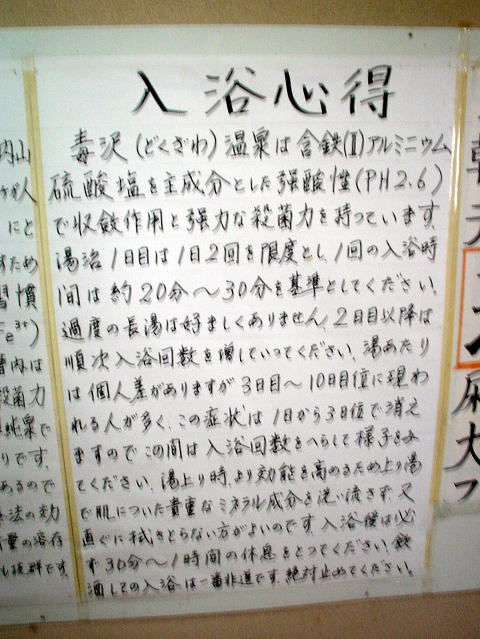 入浴心得
毒沢(どくざわ)温泉は含鉄(Ⅱ)アルミニウム
硫酸塩を主成分とした強酸性(PH2.6)
で収斂作用と強力な殺菌力を持っています。
湯治1日目は1日2回を限度とし、1回の入浴時
間は約20分～30分を基準としてください。
過度の長湯は好ましくありません。2日目以降は
順次入浴回数を増していってください。湯あたり
は個人差がありますが3日目～10日目位に現わ
れる人が多く、この症状は1日から3日位で消え
ますのでこの間は入浴回数をへらして様子をみ
てください。湯上り時、より効能を高めるため上り湯
で肌についた貴重なミネラル成分を洗い流さず、又
直ぐに拭きとらない方がよいのです。入浴後は必
ず30分～1時間の休息をとってください。飲
酒しての入浴は一番非道です。絶対止めてください。
内山
が人
にと
ため
習慣
Fe³⁺)
槽内は
殺菌力
泉で
りです。
あるので
法の効
量の溶存
も抜群です。
泉大